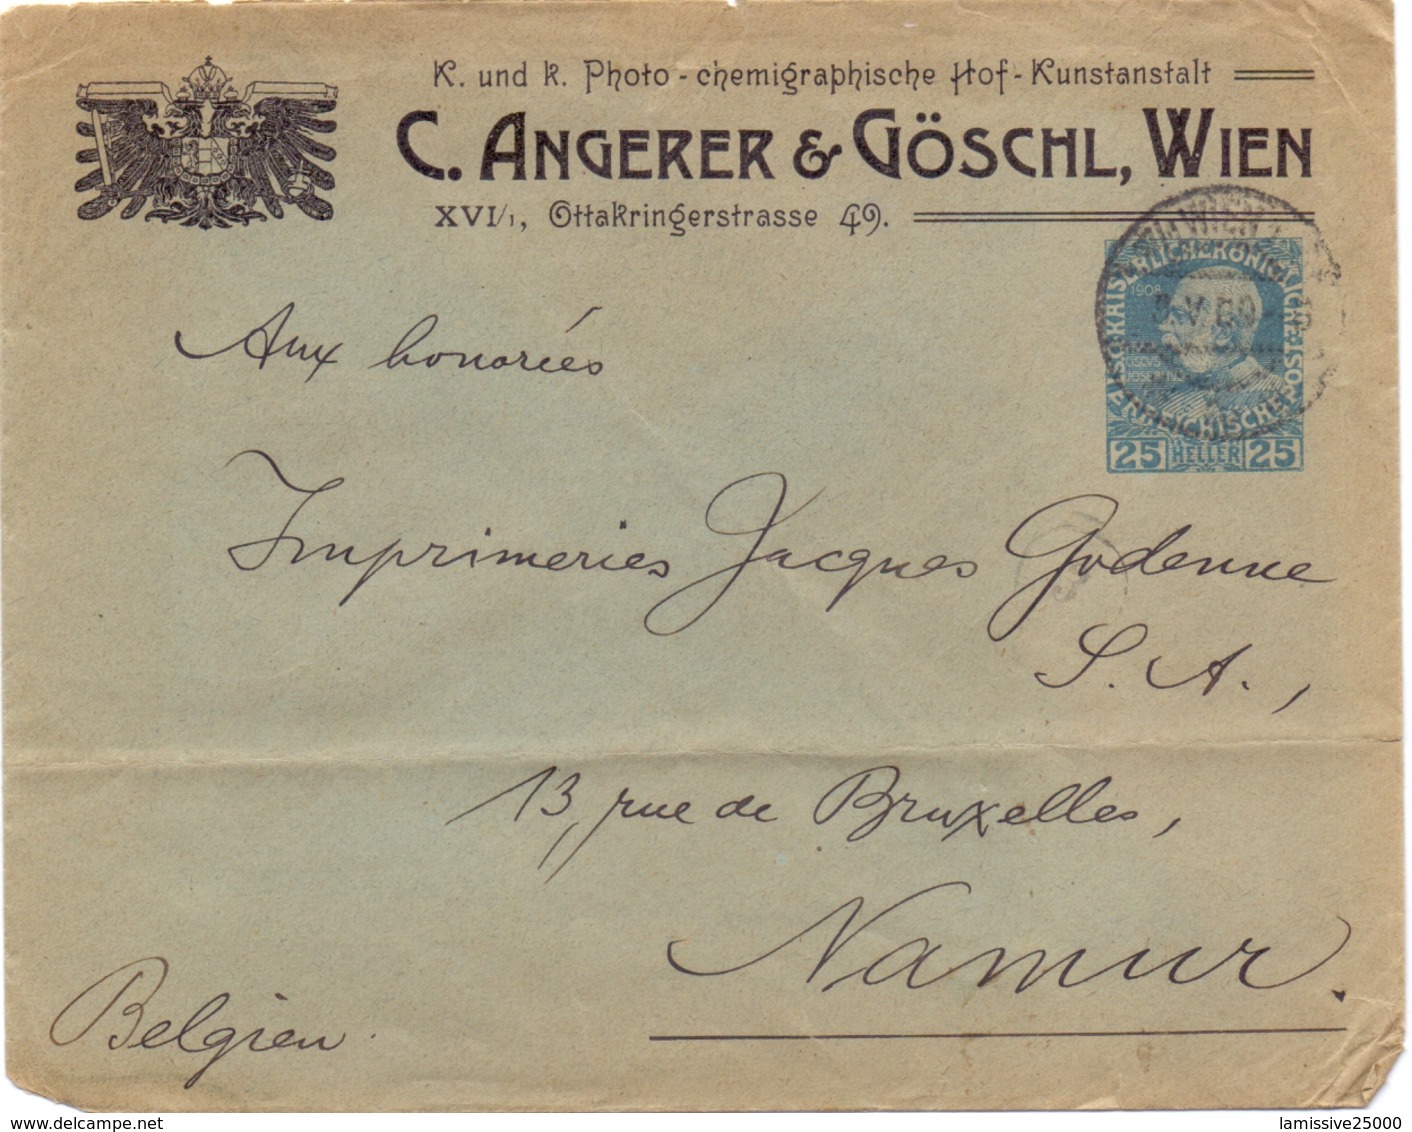 K. und k. Photo-chemigraphische Hof-Kunstanstalt
C. ANGERER & GÖSCHL, WIEN
XVI/1, Ottakringerstrasse 49.
WIEN
KAISERLICHE KÖNIGLICHE
1908
ÖSTERREICHISCHE POST
25 HELLER 25
Aux honorées
Imprimeries Jacques Godenne
S. A.,
13, rue de Bruxelles,
Namur.
Belgien
www.delcampe.net
lamissive25000